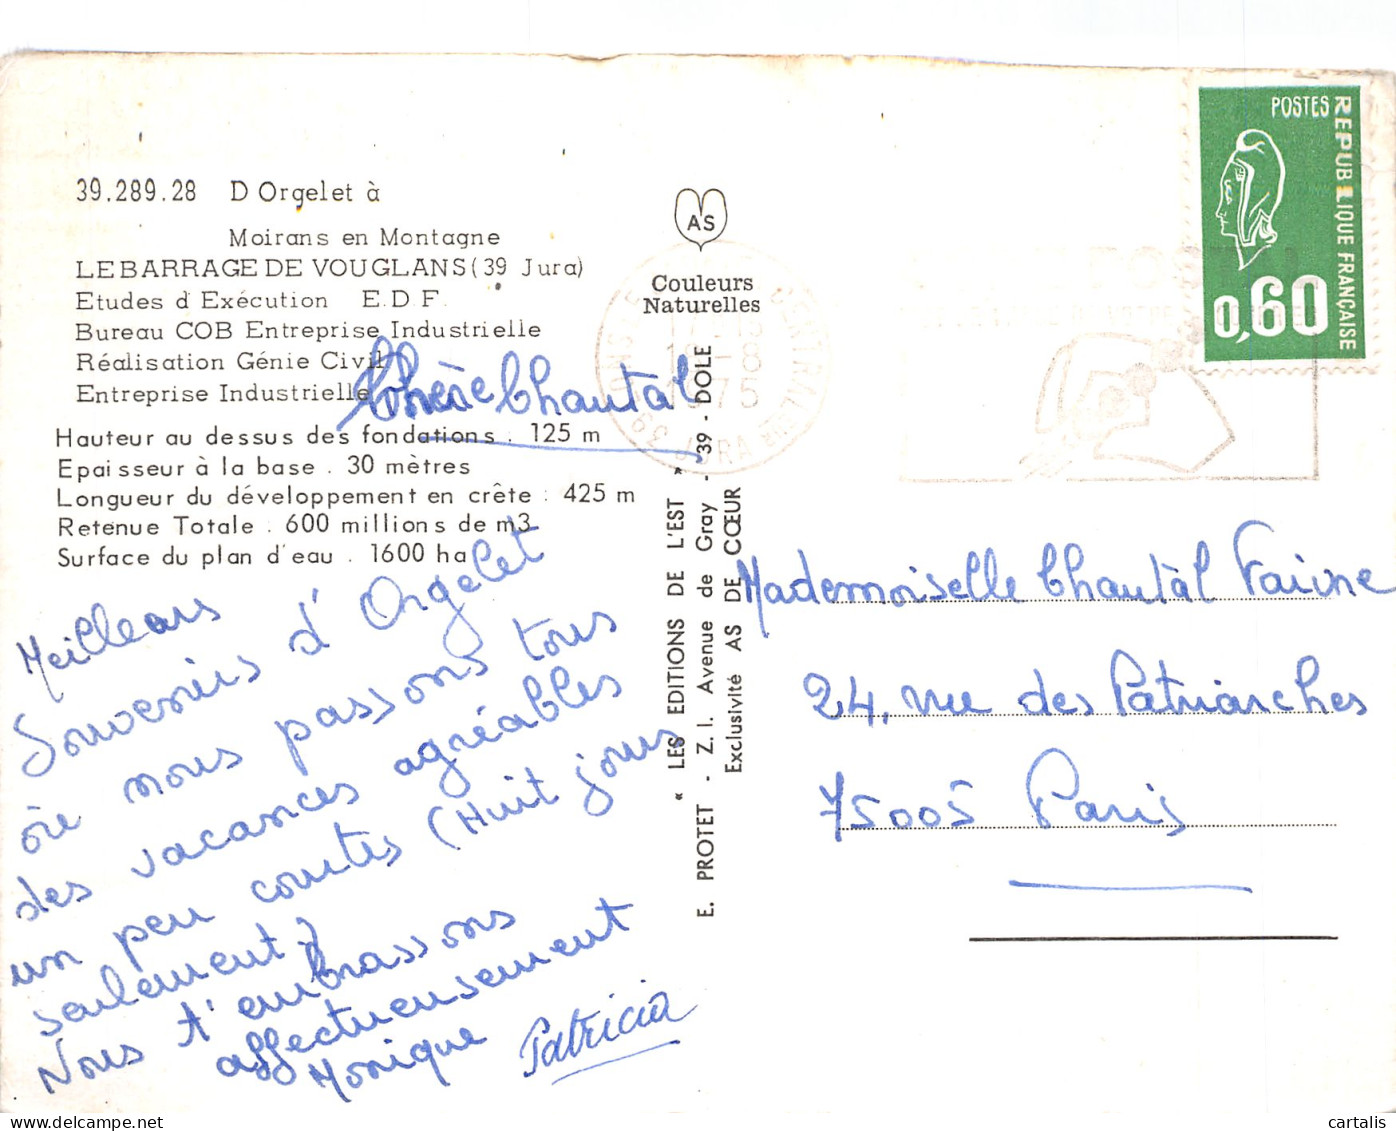 39.289.28 D Orgelet à
Moirans en Montagne
LE BARRAGE DE VOUGLANS (39 Jura)
Etudes d'Exécution E.D.F.
Bureau COB Entreprise Industrielle
Réalisation Génie Civil
Entreprise Industrielle
Hauteur au dessus des fondations : 125 m
Epaisseur à la base . 30 mètres
Longueur du développement en crête : 425 m
Retenue Totale : 600 millions de m3
Surface du plan d'eau . 1600 ha
Chère Chantal
Meilleurs
Souvenirs d'Orgelet
où nous passons tous
des vacances agréables
un peu courtes (Huit jours
seulement)
Nous t'embrassons
affectueusement
Monique Patricia
AS
Couleurs
Naturelles
« LES EDITIONS DE L'EST »
E. PROTET - Z.I. Avenue de Gray - 39 - DOLE
Exclusivité AS DE CŒUR
18-8
1975
39 JURA
POSTES
REPUBLIQUE FRANÇAISE
0,60
Mademoiselle Chantal Faivre
24, rue des Patriarches
75005 Paris
cartalis
cartalis